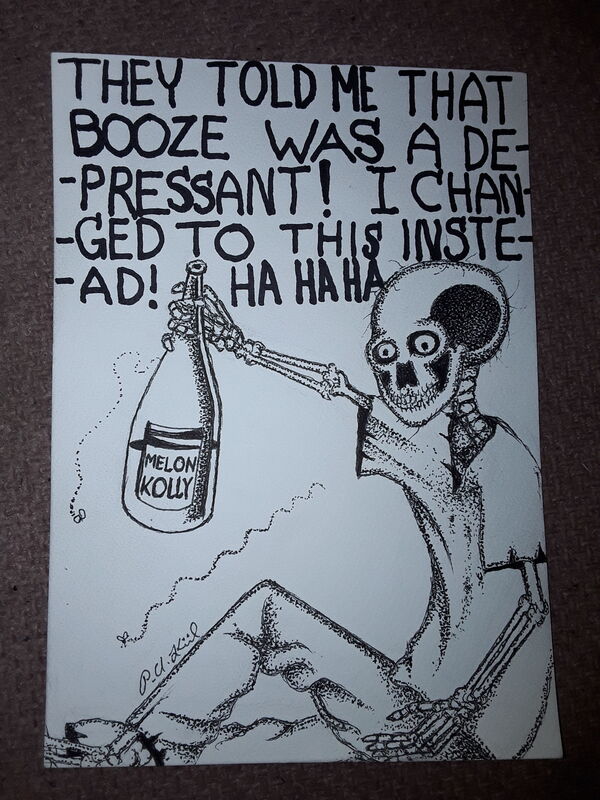 THEY TOLD ME THAT
BOOZE WAS A DE-
-PRESSANT! I CHAN-
-GED TO THIS INSTE-
-AD! HA HA HA
MELON
KOLLY